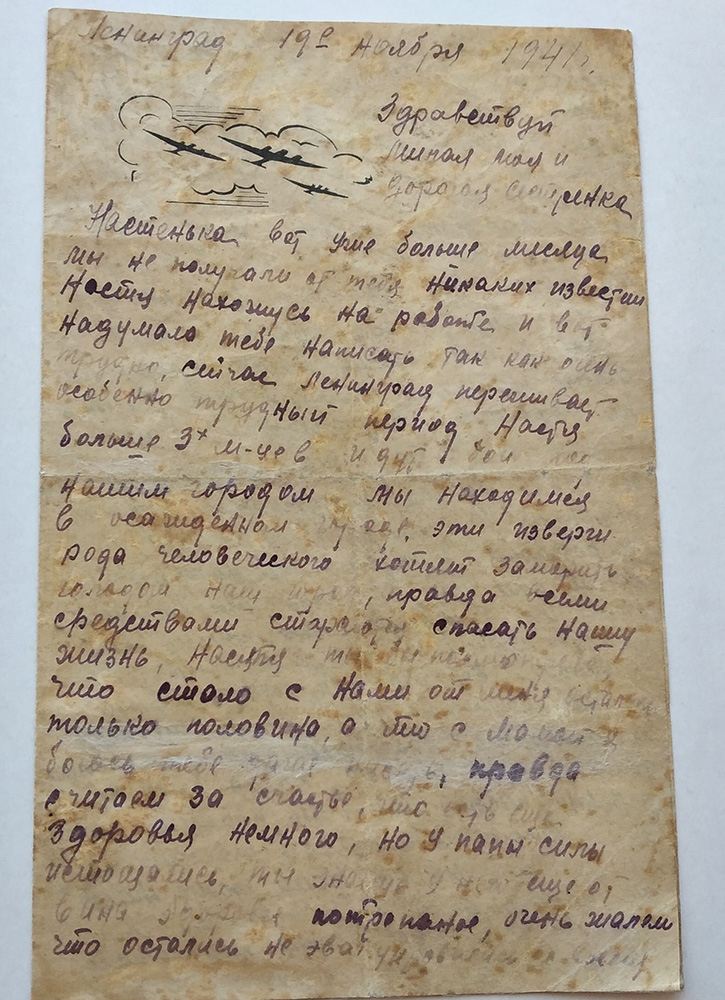 Ленинград 19е ноября 1941г.
Здравствуй
Милая моя и
Дорогая
Настенька вот уже больше месяца
мы не получали от тебя никаких известий
Настя нахожусь на работе и вот
надумала тебе написать так как очень
трудно, сейчас Ленинград переживает
особенно трудный период Настя
больше 3х м-цев идут бои под
нашим городом мы находимся
в осажденном городе, эти изверги
рода человеческого хотят заморить
голодом наш город, правда всеми
средствами стараются спасать нашу
жизнь, Настя ты бы
что стало с нами от меня
только половина, а что с мамой я
боюсь тебе даже писать, правда
считаем за счастье, что есть еще
здоровья немного, но у папы силы
истощались, ты знаешь у него еще от
потрепаное, очень жалем
что остались не